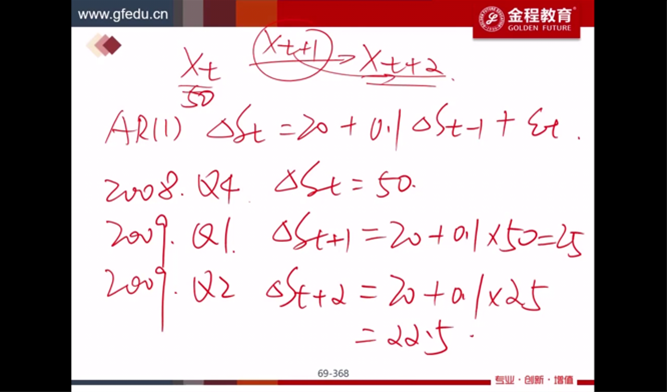 www.gfedu.cn
金程教育
GOLDEN FUTURE
Xt Xt+1 → Xt+2.
50
AR(1) ΔSt = 20 + 0.1 ΔSt-1 + εt.
2008. Q4 ΔSt = 50.
2009. Q1. ΔSt+1 = 20 + 0.1 × 50 = 25
2009. Q2 ΔSt+2 = 20 + 0.1 × 25
= 22.5.
69-368
专业·创新·增值